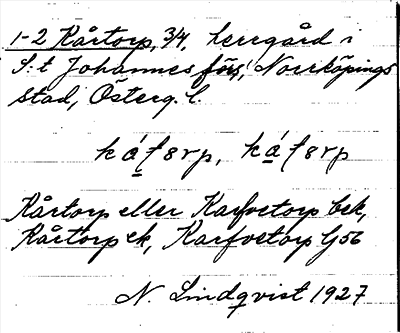 1-2 Kårtorp, 3/4, herrgård i
S:t Johannes förs., Norrköpings
stad, Österg. l.
Kårtorp eller Karfvetorp bek,
Kårtorp ek, Karfvetorp Gj56
N. Lindqvist 1927